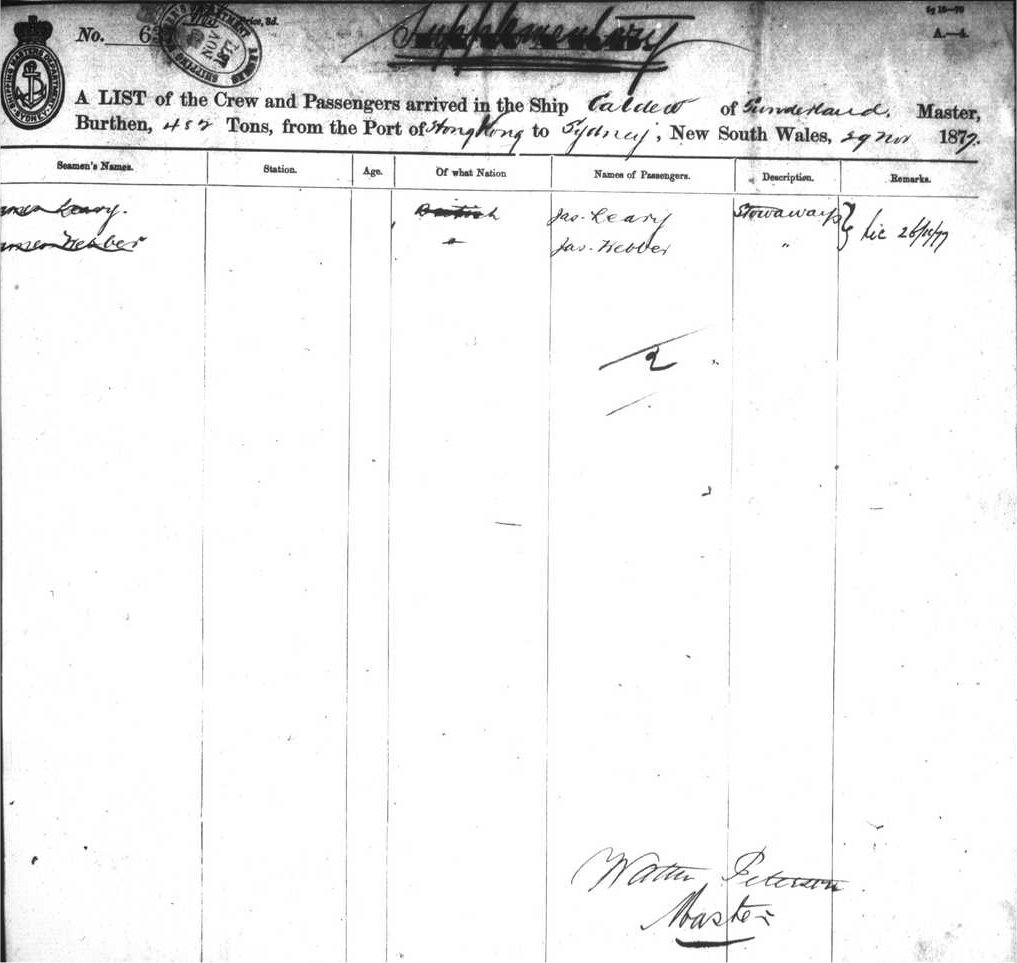 No. 6 Price, 3d. Sg 16—70
Supplementary A.—4.
SHIPPING MASTERS DEPARTMENT SYDNEY
NOV
A LIST of the Crew and Passengers arrived in the Ship Caldew of Sunderland, Master,
Burthen, 452 Tons, from the Port of Hong Kong to Sydney, New South Wales, 29 Nov 1877.
Seamen's Names. Station. Age. Of what Nation Names of Passengers. Description. Remarks.
Leary. British Jas. Leary Stowaways
Webber " Jas. Webber "
2
Walter Peterson
Master